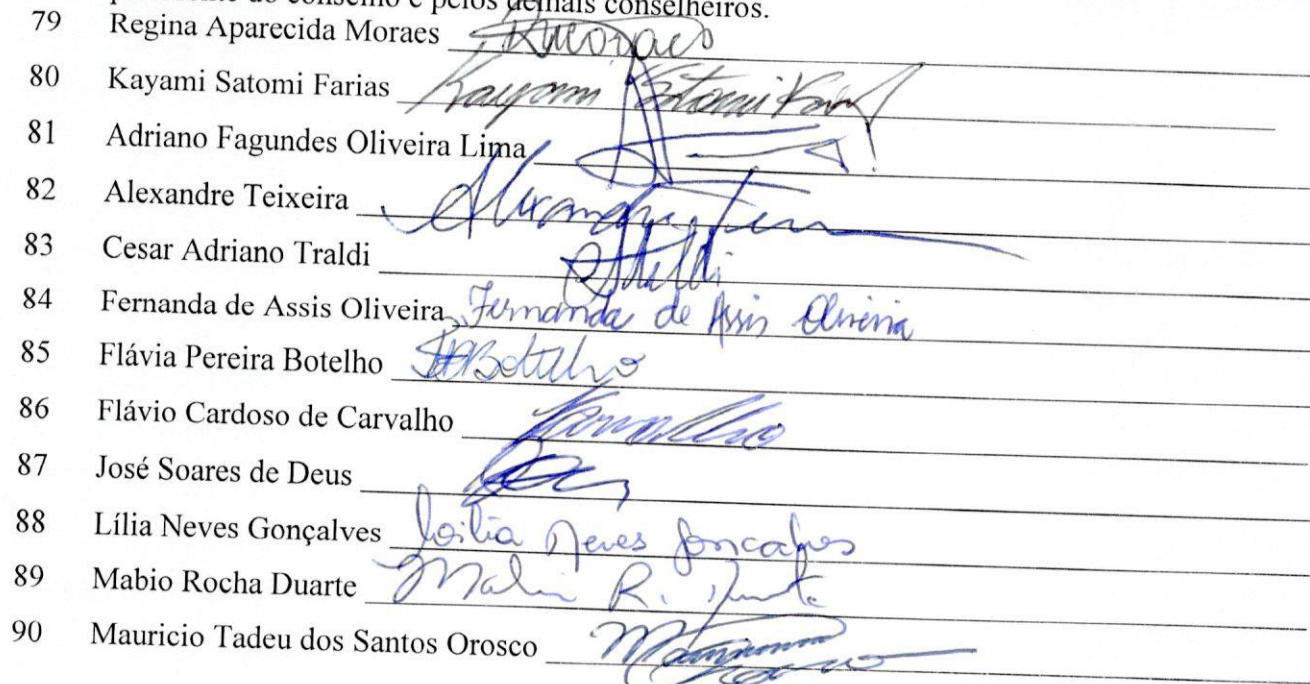 conselho e pelos demais conselheiros.
79 Regina Aparecida Moraes
80 Kayami Satomi Farias Kayami Satomi
81 Adriano Fagundes Oliveira Lima
82 Alexandre Teixeira
83 Cesar Adriano Traldi
84 Fernanda de Assis Oliveira Fernanda de Assis Oliveira
85 Flávia Pereira Botelho
86 Flávio Cardoso de Carvalho
87 José Soares de Deus
88 Lília Neves Gonçalves Lília Neves Goncalves
89 Mabio Rocha Duarte
90 Mauricio Tadeu dos Santos Orosco